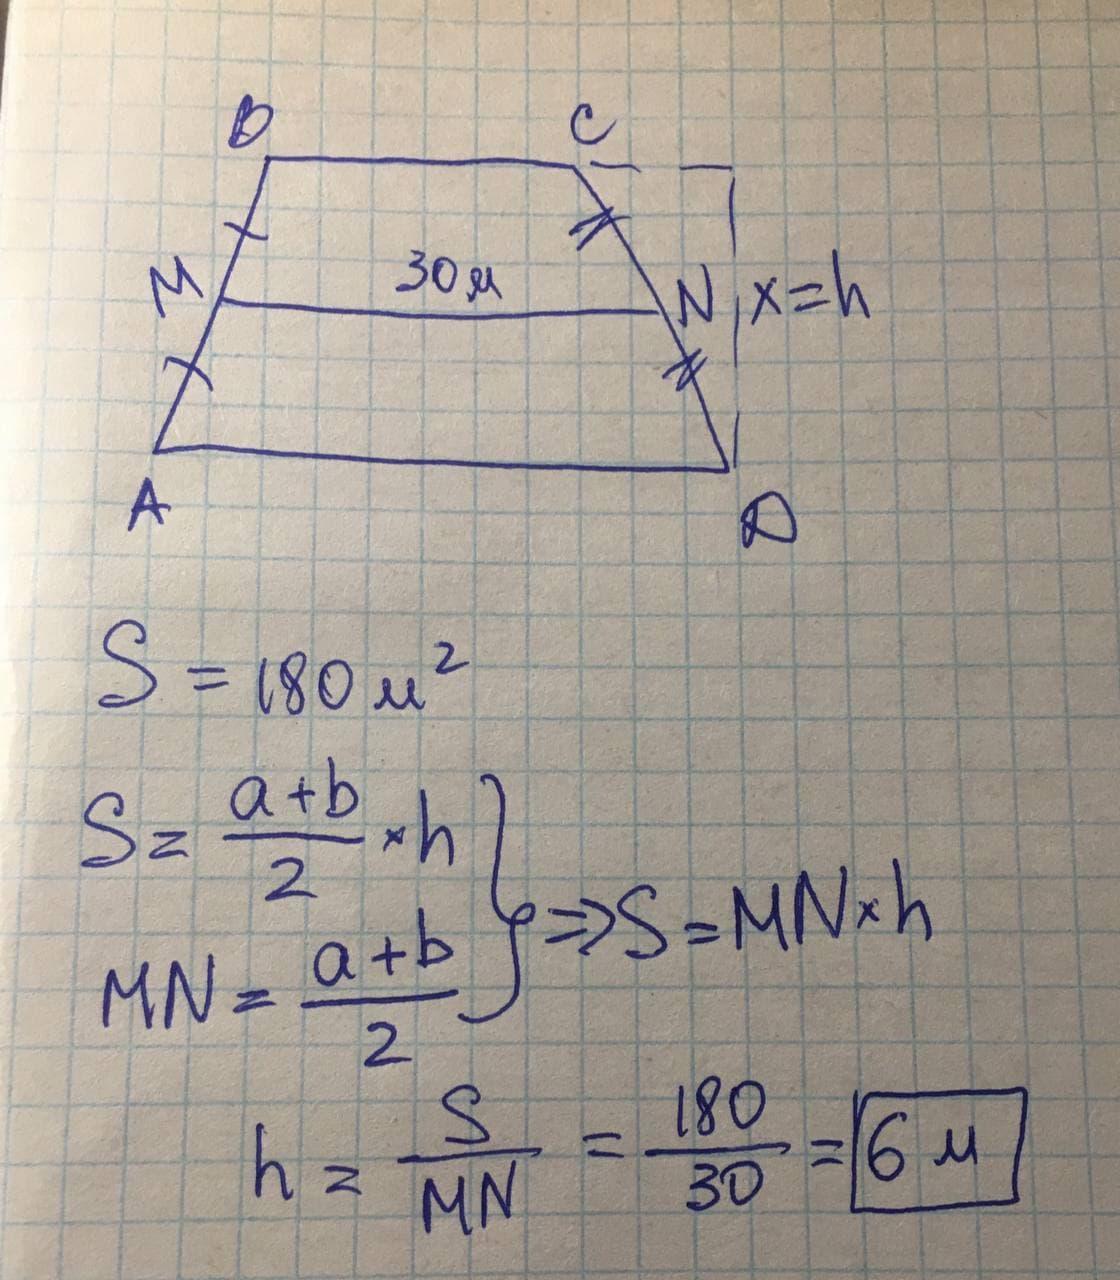 B C
30м
M N x=h
A D
S = 180 м²
S = (a+b)/2 × h
MN = (a+b)/2
} ⇒ S = MN × h
h = S/MN = 180/30 = 6 м